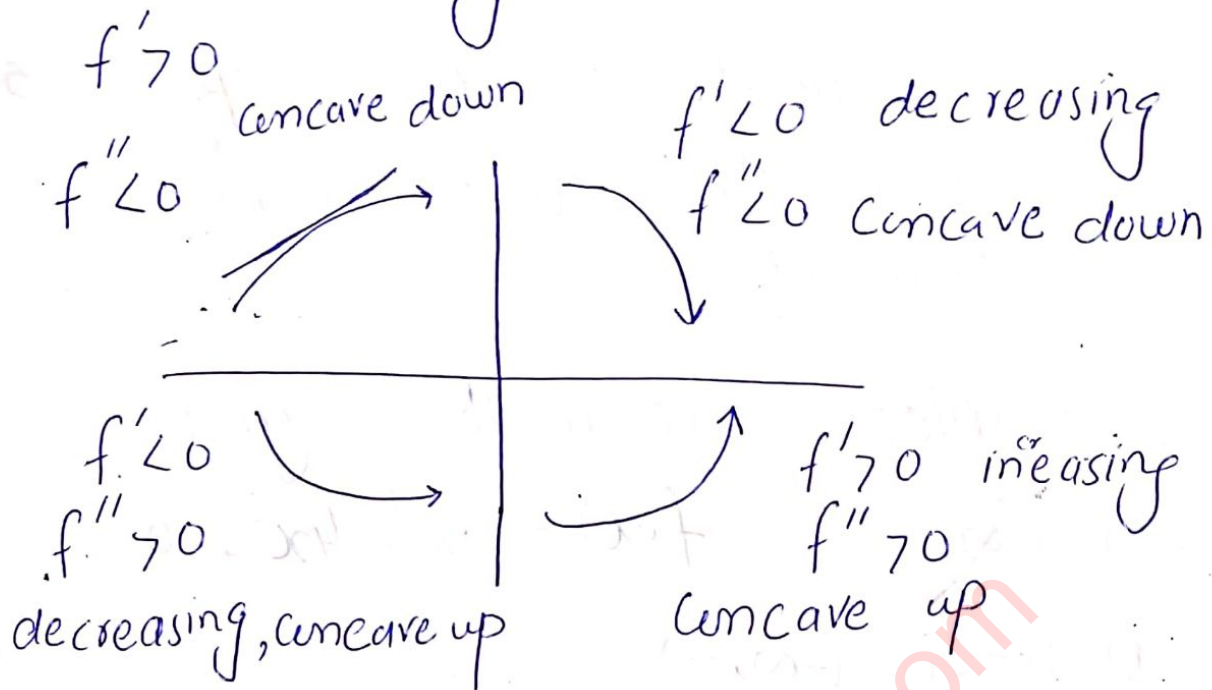 f'>0
concave down
f''<0
f'<0 decreasing
f''<0 Concave down
f'<0
f''>0
decreasing, concave up
f'>0 increasing
f''>0
Concave up
om